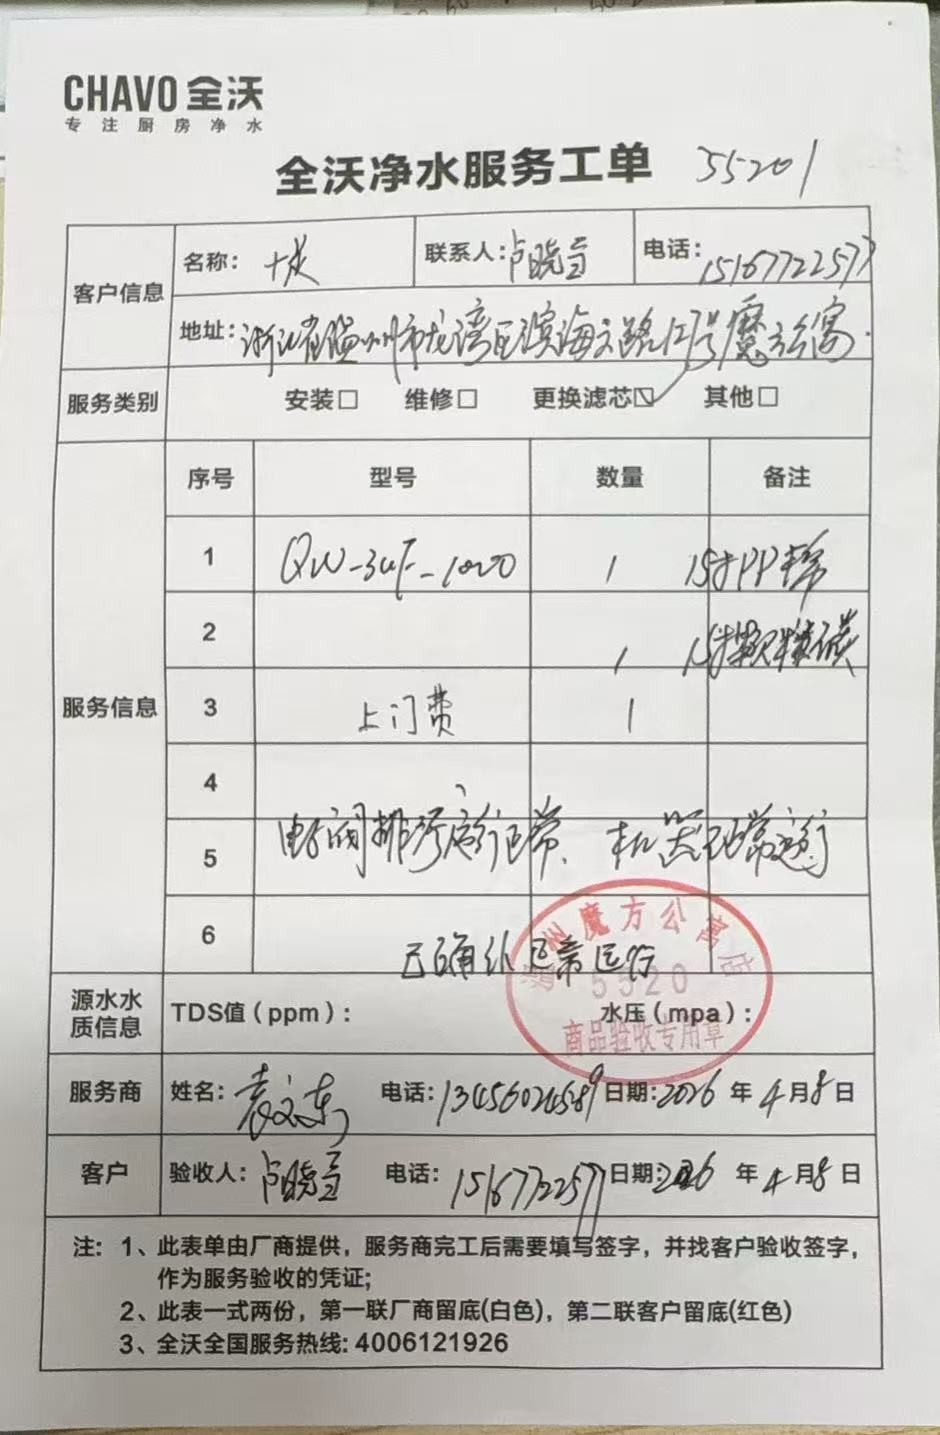 CHAVO 全沃
专注厨房净水
全沃净水服务工单 55201
客户信息
名称: 联系人: 卢晓 电话: 15167722577
地址: 浙江省温州市龙湾区滨海路号魔方公寓
服务类别 安装□ 维修□ 更换滤芯☑ 其他□
服务信息
序号 型号 数量 备注
1 QW-3UF-1000 1 15寸PP棉
2 1 15寸颗粒碳
3 上门费 1
4
5 电子阀排污运行正常、机器正常运行
6 已确认正常运行
温州魔方公寓店
5520
商品验收专用章
源水水质信息 TDS值(ppm): 水压(mpa):
服务商 姓名: 袁文东 电话: 13456024589 日期: 2026 年 4 月 8 日
客户 验收人: 卢晓 电话: 15167722577 日期: 2026 年 4 月 8 日
注: 1、此表单由厂商提供，服务商完工后需要填写签字，并找客户验收签字，
作为服务验收的凭证;
2、此表一式两份，第一联厂商留底(白色)，第二联客户留底(红色)
3、全沃全国服务热线: 4006121926